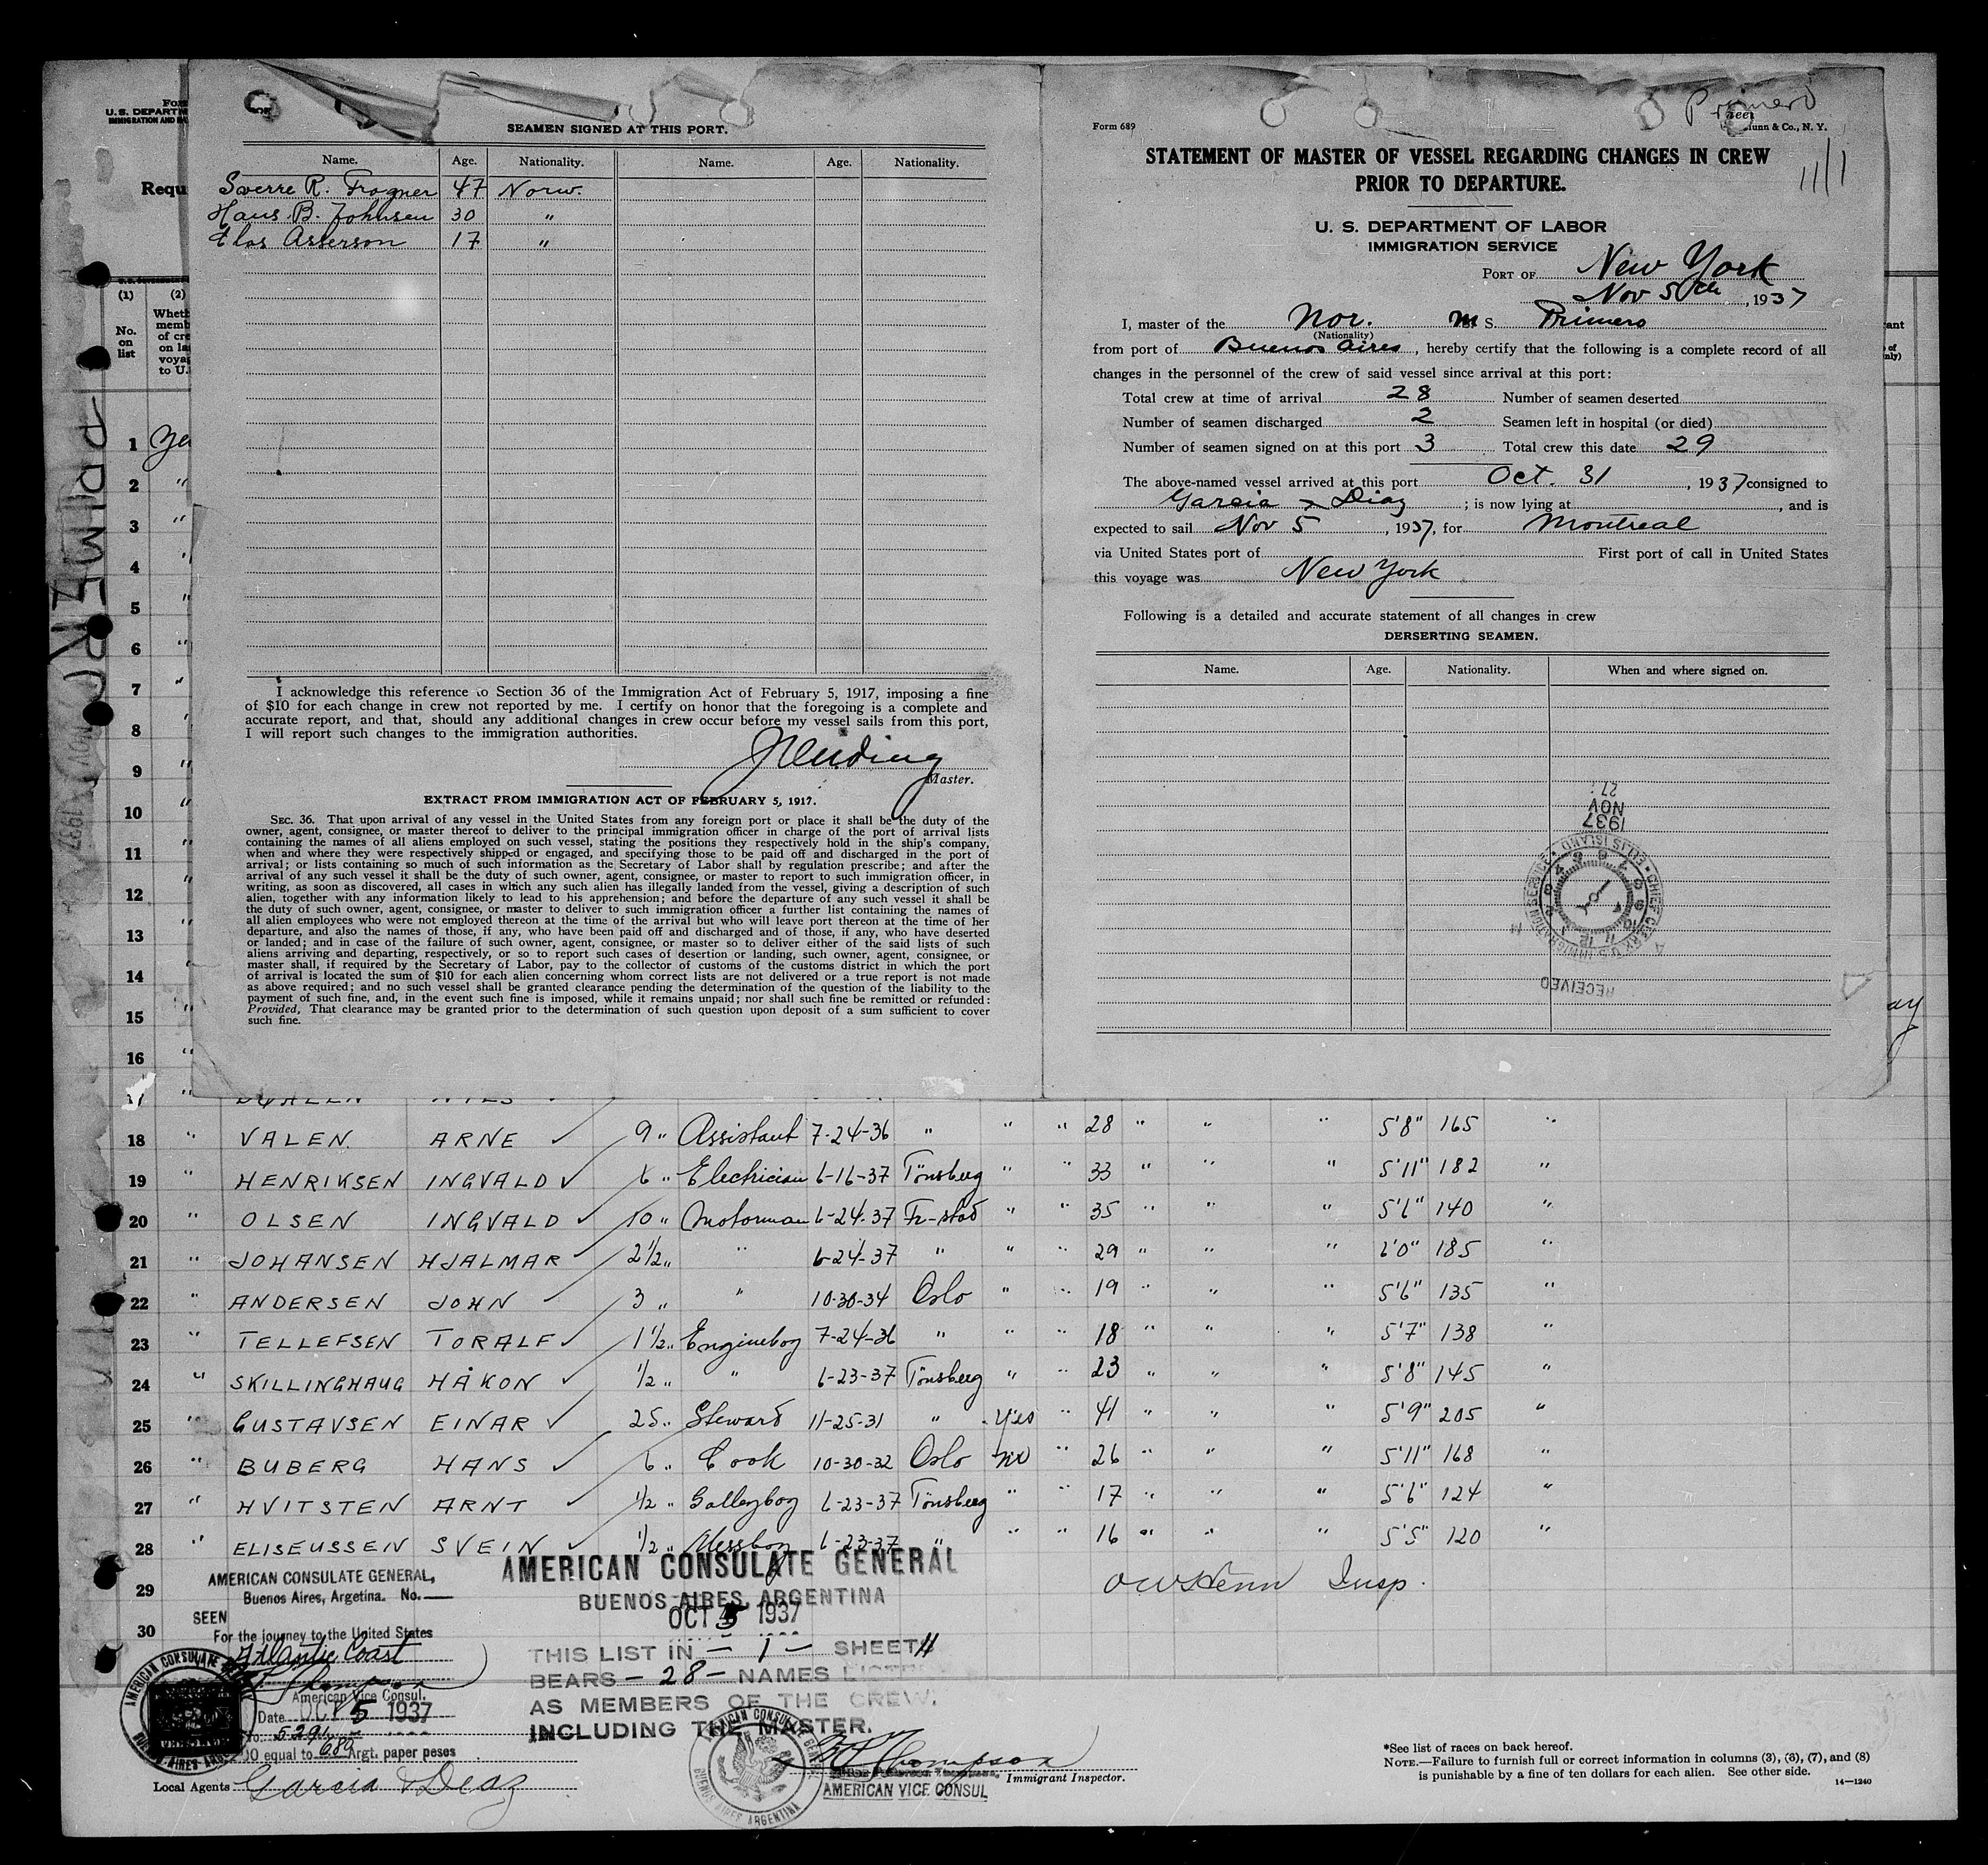 SEAMEN SIGNED AT THIS PORT.
Name. Age. Nationality. Name. Age. Nationality.
Sverre R. Frogner 47 Norw.
Hans B. Johnsen 30 "
Asserson 17 "
I acknowledge this reference to Section 36 of the Immigration Act of February 5, 1917, imposing a fine
of $10 for each change in crew not reported by me. I certify on honor that the foregoing is a complete and
accurate report, and that, should any additional changes in crew occur before my vessel sails from this port,
I will report such changes to the immigration authorities.
Master.
EXTRACT FROM IMMIGRATION ACT OF FEBRUARY 5, 1917.
SEC. 36. That upon arrival of any vessel in the United States from any foreign port or place it shall be the duty of the
owner, agent, consignee, or master thereof to deliver to the principal immigration officer in charge of the port of arrival lists
containing the names of all aliens employed on such vessel, stating the positions they respectively hold in the ship's company,
when and where they were respectively shipped or engaged, and specifying those to be paid off and discharged in the port of
arrival; or lists containing so much of such information as the Secretary of Labor shall by regulation prescribe; and after the
arrival of any such vessel it shall be the duty of such owner, agent, consignee, or master to report to such immigration officer, in
writing, as soon as discovered, all cases in which any such alien has illegally landed from the vessel, giving a description of such
alien, together with any information likely to lead to his apprehension; and before the departure of any such vessel it shall be
the duty of such owner, agent, consignee, or master to deliver to such immigration officer a further list containing the names of
all alien employees who were not employed thereon at the time of the arrival but who will leave port thereon at the time of her
departure, and also the names of those, if any, who have been paid off and discharged and of those, if any, who have deserted
or landed; and in case of the failure of such owner, agent, consignee, or master so to deliver either of the said lists of such
aliens arriving and departing, respectively, or so to report such cases of desertion or landing, such owner, agent, consignee, or
master shall, if required by the Secretary of Labor, pay to the collector of customs of the customs district in which the port
of arrival is located the sum of $10 for each alien concerning whom correct lists are not delivered or a true report is not made
as above required; and no such vessel shall be granted clearance pending the determination of the question of the liability to the
payment of such fine, and, in the event such fine is imposed, while it remains unpaid; nor shall such fine be remitted or refunded:
Provided, That clearance may be granted prior to the determination of such question upon deposit of a sum sufficient to cover
such fine.
Primero
Form 689
& Co., N. Y.
STATEMENT OF MASTER OF VESSEL REGARDING CHANGES IN CREW
PRIOR TO DEPARTURE.
11/1
U. S. DEPARTMENT OF LABOR
IMMIGRATION SERVICE
PORT OF New York
Nov 5th, 1937
I, master of the Nor. M S. Primero
(Nationality)
from port of Buenos Aires, hereby certify that the following is a complete record of all
changes in the personnel of the crew of said vessel since arrival at this port:
Total crew at time of arrival 28 Number of seamen deserted
Number of seamen discharged 2 Seamen left in hospital (or died)
Number of seamen signed on at this port 3 Total crew this date 29
The above-named vessel arrived at this port Oct. 31, 1937 consigned to
Garcia & Diaz; is now lying at , and is
expected to sail Nov 5, 1937, for Montreal
via United States port of First port of call in United States
this voyage was New York
Following is a detailed and accurate statement of all changes in crew
DERSERTING SEAMEN.
Name. Age. Nationality. When and where signed on.
27
NOV
1937
CHIEF CLERK U.S. IMMIGRATION SERVICE • ELLIS ISLAND •
RECEIVED
U. S. DEPARTM
IMMIGRATION AND
Requ
(1) (2)
No. on list
Wheth memb of cre on la voya to U.
PRIMERO
NOV 5 1937
1
2 "
3 "
4 "
5 "
6 "
7 "
8 "
9 "
10 "
11 "
12 "
13 "
14 "
15 "
16 "
17 "
18 " VALEN ARNE ✓ 9 " Assistant 7-24-36 " " " 28 " " " 5'8" 165 "
19 " HENRIKSEN INGVALD ✓ 6 " Electrician 6-16-37 Tönsberg " " 33 " " " 5'11" 182 "
20 " OLSEN INGVALD ✓ 10 " Motorman 6-24-37 Fr-stad " " 35 " " " 5'6" 140 "
21 " JOHANSEN HJALMAR ✓ 2 1/2 " " 6-24-37 " " " 29 " " " 6'0" 185 "
22 " ANDERSEN JOHN ✓ 3 " " 10-30-34 Oslo " " 19 " " " 5'6" 135 "
23 " TELLEFSEN TORALF ✓ 1 1/2 " Engineboy 7-24-36 " " " 18 " " " 5'7" 138 "
24 " SKILLINGHAUG HÅKON ✓ 1/2 " " 6-23-37 Tönsberg " " 23 " " " 5'8" 145 "
25 " GUSTAVSEN EINAR ✓ 25 " Steward 11-25-31 " Yes " 41 " " " 5'9" 205 "
26 " BUBERG HANS ✓ 6 " Cook 10-30-32 Oslo no " 26 " " " 5'11" 168 "
27 " HVITSTEN ARNT ✓ 1/2 " Galleyboy 6-23-37 Tönsberg " " 17 " " " 5'6" 124 "
28 " ELISEUSSEN SVEIN ✓ 1/2 " Messboy 6-23-37 " " " 16 " " " 5'5" 120 "
29
30
Insp.
AMERICAN CONSULATE GENERAL,
Buenos Aires, Argetina. No.
SEEN
For the journey to the United States
Atlantic Coast
Thompson
American Vice Consul.
Date OCT 5 1937
No. 5291
equal to 689 Argt. paper pesos
Local Agents Garcia & Diaz
AMERICAN CONSULATE GENERAL
BUENOS AIRES, ARGENTINA
OCT 5 1937
THIS LIST IN – 1 – SHEET
BEARS – 28 – NAMES LISTED
AS MEMBERS OF THE CREW,
INCLUDING THE MASTER.
AMERICAN CONSULATE GENERAL
BUENOS AIRES ARGENTINA
Thompson
Immigrant Inspector.
AMERICAN VICE CONSUL
*See list of races on back hereof.
NOTE.—Failure to furnish full or correct information in columns (3), (3), (7), and (8)
is punishable by a fine of ten dollars for each alien. See other side.
14—1240